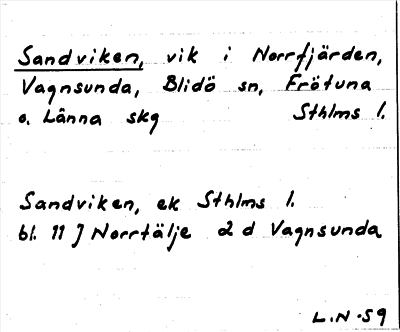 Sandviken, vik i Norrfjärden,
Vagnsunda, Blidö sn, Frötuna
o. Länna skg Sthlms l.
Sandviken, ek Sthlms l.
bl. 11 J Norrtälje 2 d Vagnsunda
L.N -59